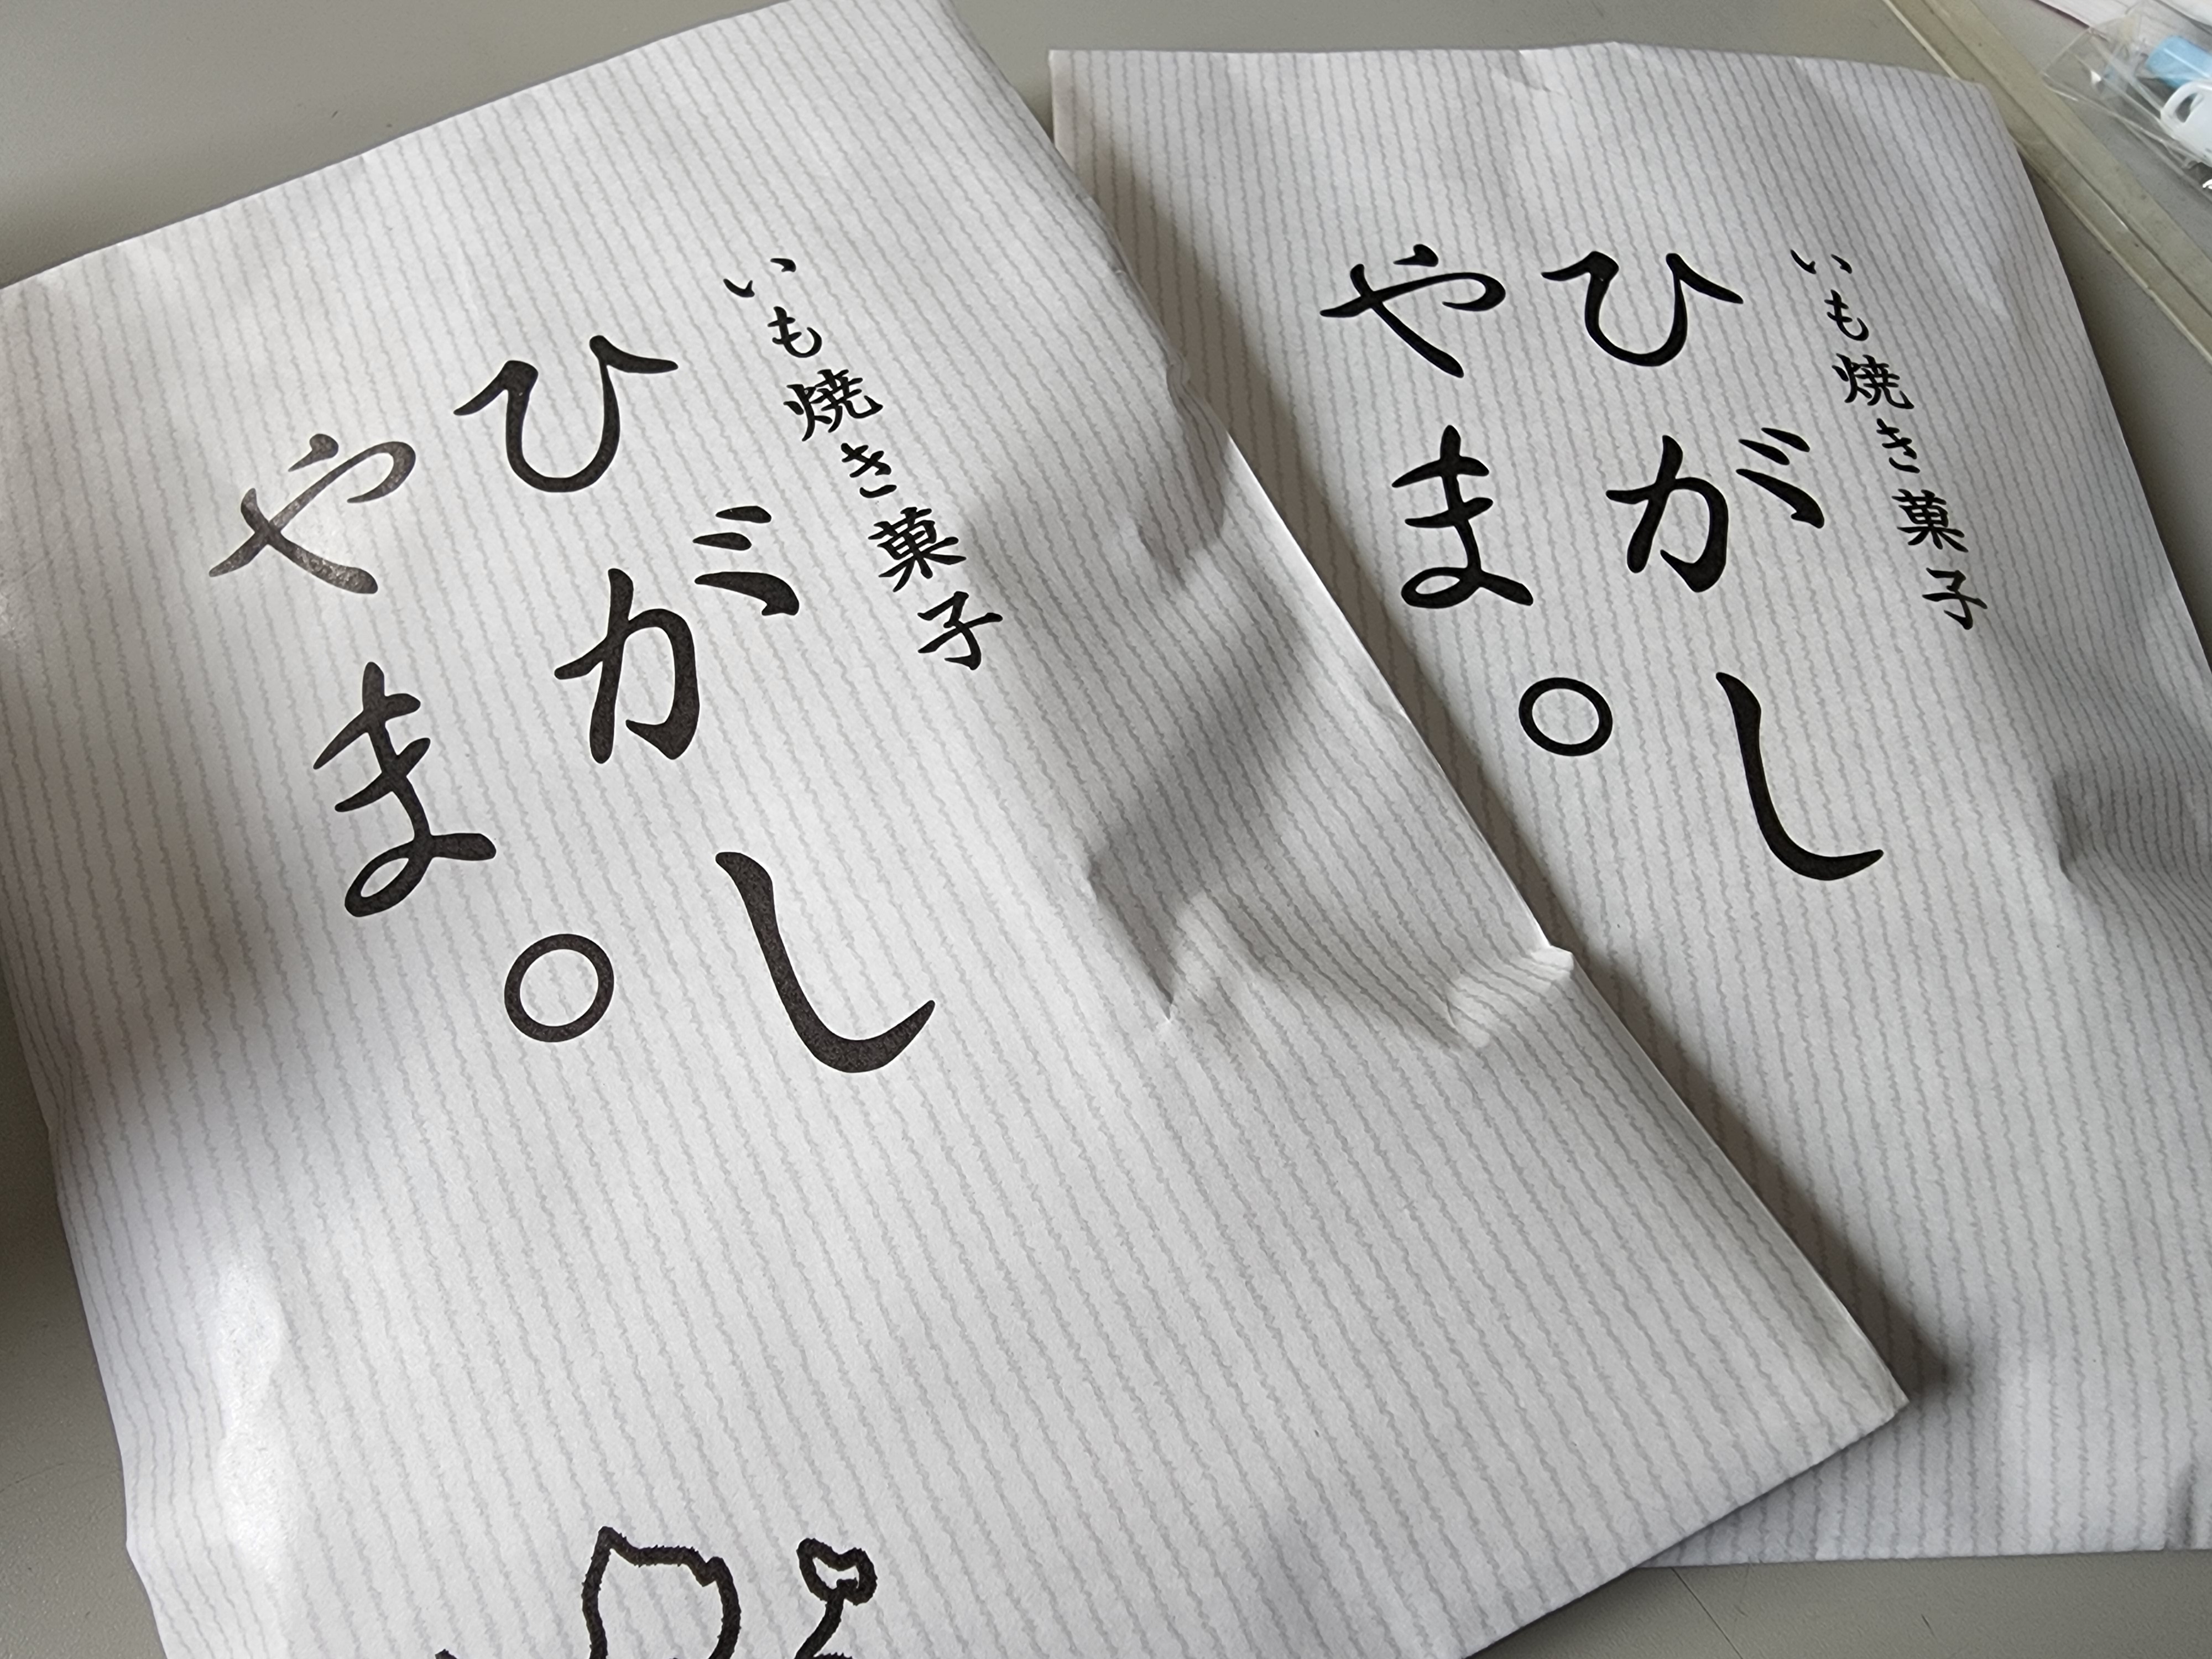 いも焼き菓子
ひがし
やま。
いも焼き菓子
ひがし
やま。